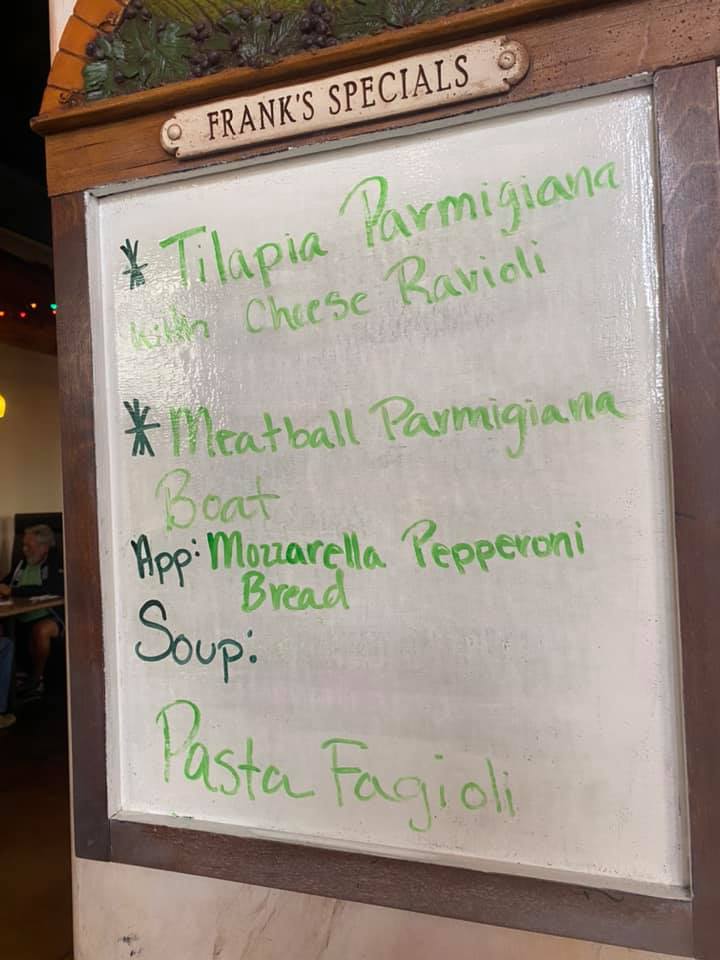 FRANK'S SPECIALS
* Tilapia Parmigiana
with Cheese Ravioli
* Meatball Parmigiana
Boat
App: Mozzarella Pepperoni
Bread
Soup:
Pasta Fagioli